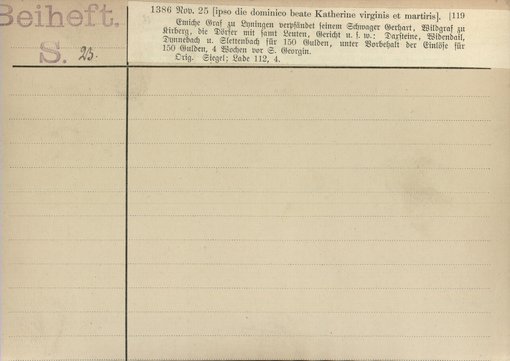 Beiheft.
S. 23.
1386 Nov. 25 [ipso die dominico beate Katherine virginis et martiris]. [119
Emiche Graf zu Lyningen verpfändet seinem Schwager Gerhart, Wildgraf zu
Kirberg, die Dörfer mit samt Leuten, Gericht u. s. w.: Darsteine, Widendail,
Dynnebach u. Slettenbach für 150 Gulden, unter Vorbehalt der Einlöse für
150 Gulden, 4 Wochen vor S. Georgin.
Orig. Siegel; Lade 112, 4.